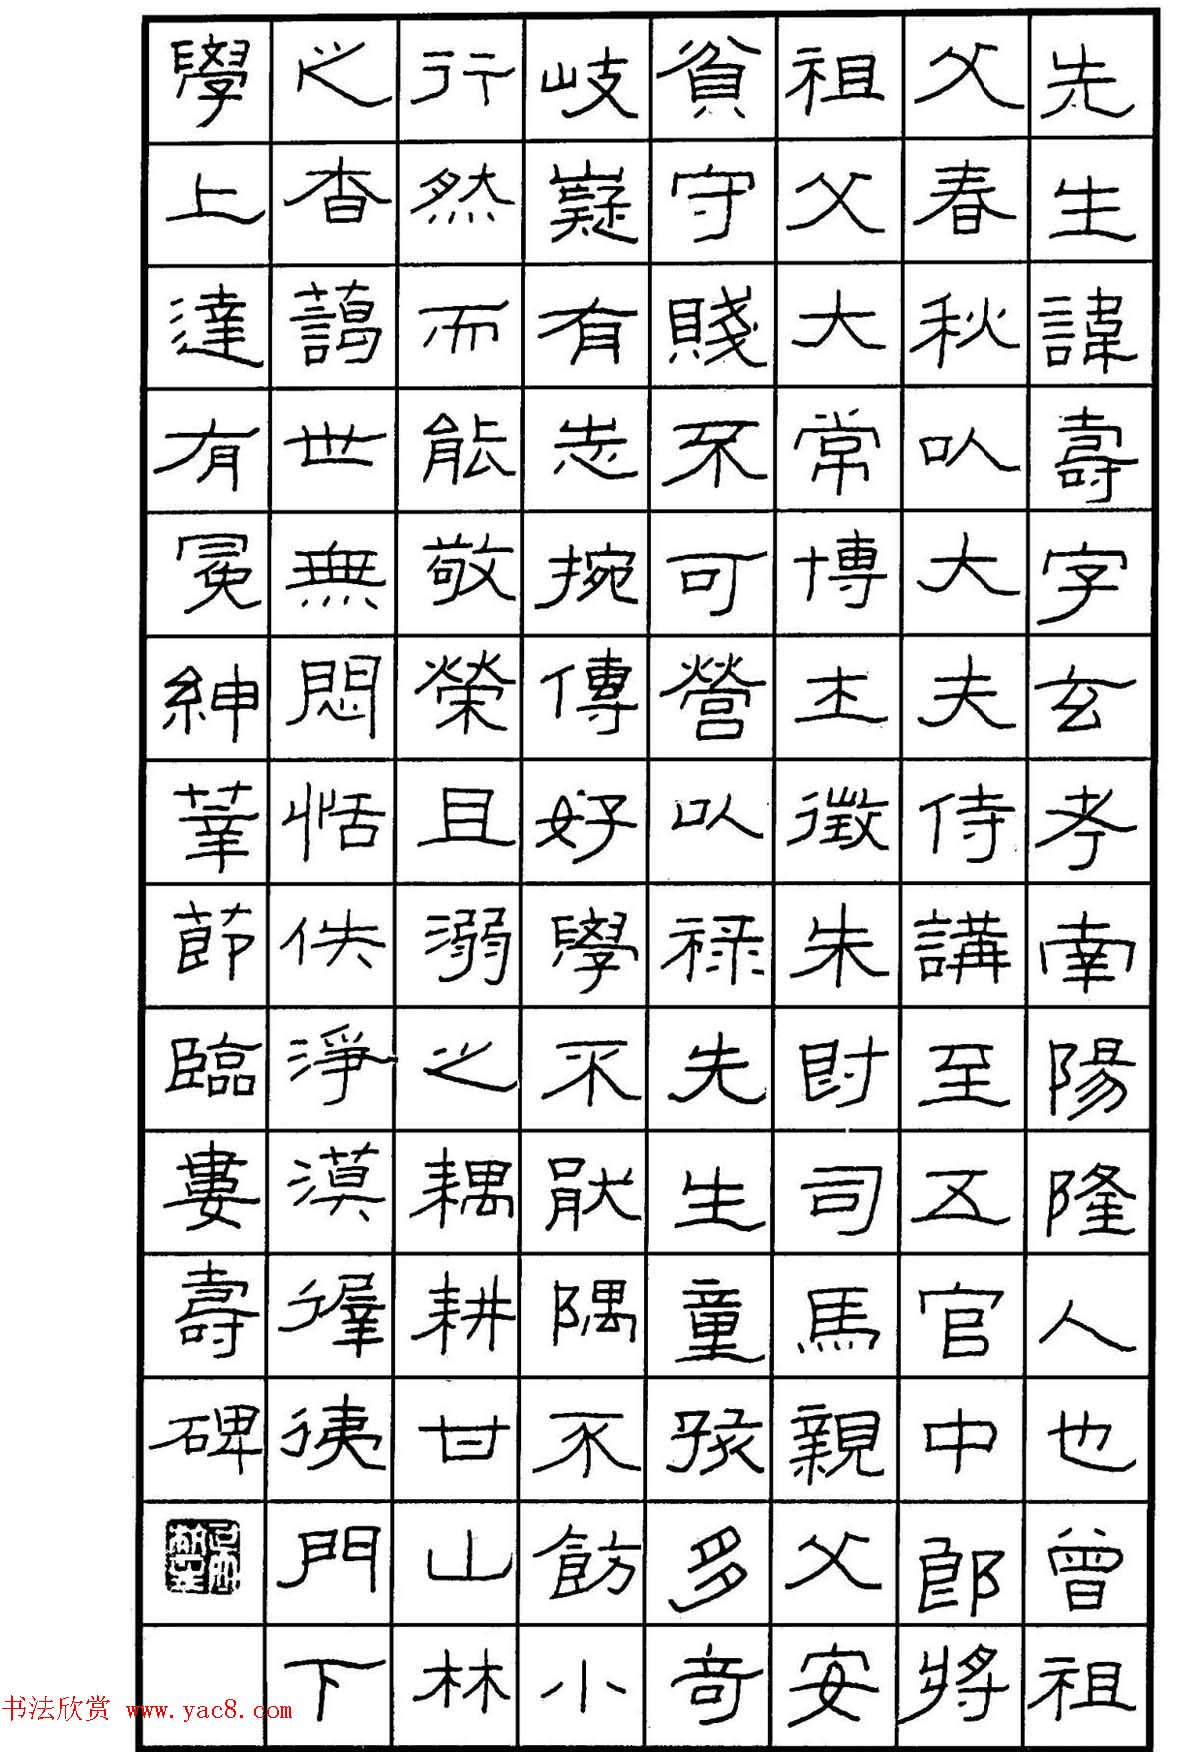 先生諱壽字玄孝南陽隆人也曾祖
父春秋以大夫侍講至五官中郎將
祖父大常博士徵朱尉司馬親父安
貧守賤不可營以祿先生童孩多奇
岐嶷有志捥傳好學不猒隅不飭小
行然而能敬榮且溺之耦耕甘山林
之杳藹世無悶恬佚淨漠徲徺門下
學上達有冕紳莘節臨婁壽碑
书法欣赏 www.yac8.com